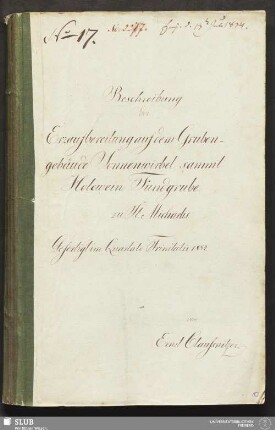 No 17.
Beschreibung
der
Erzaufbereitung auf dem Gruben-
gebäude Sonnenwirbel sammt
Holewein Fundgrube
zu St. Michaelis
Gefertigt im Quartale Trinitatis 1832
Ernst Clausnitzer.
SLUB